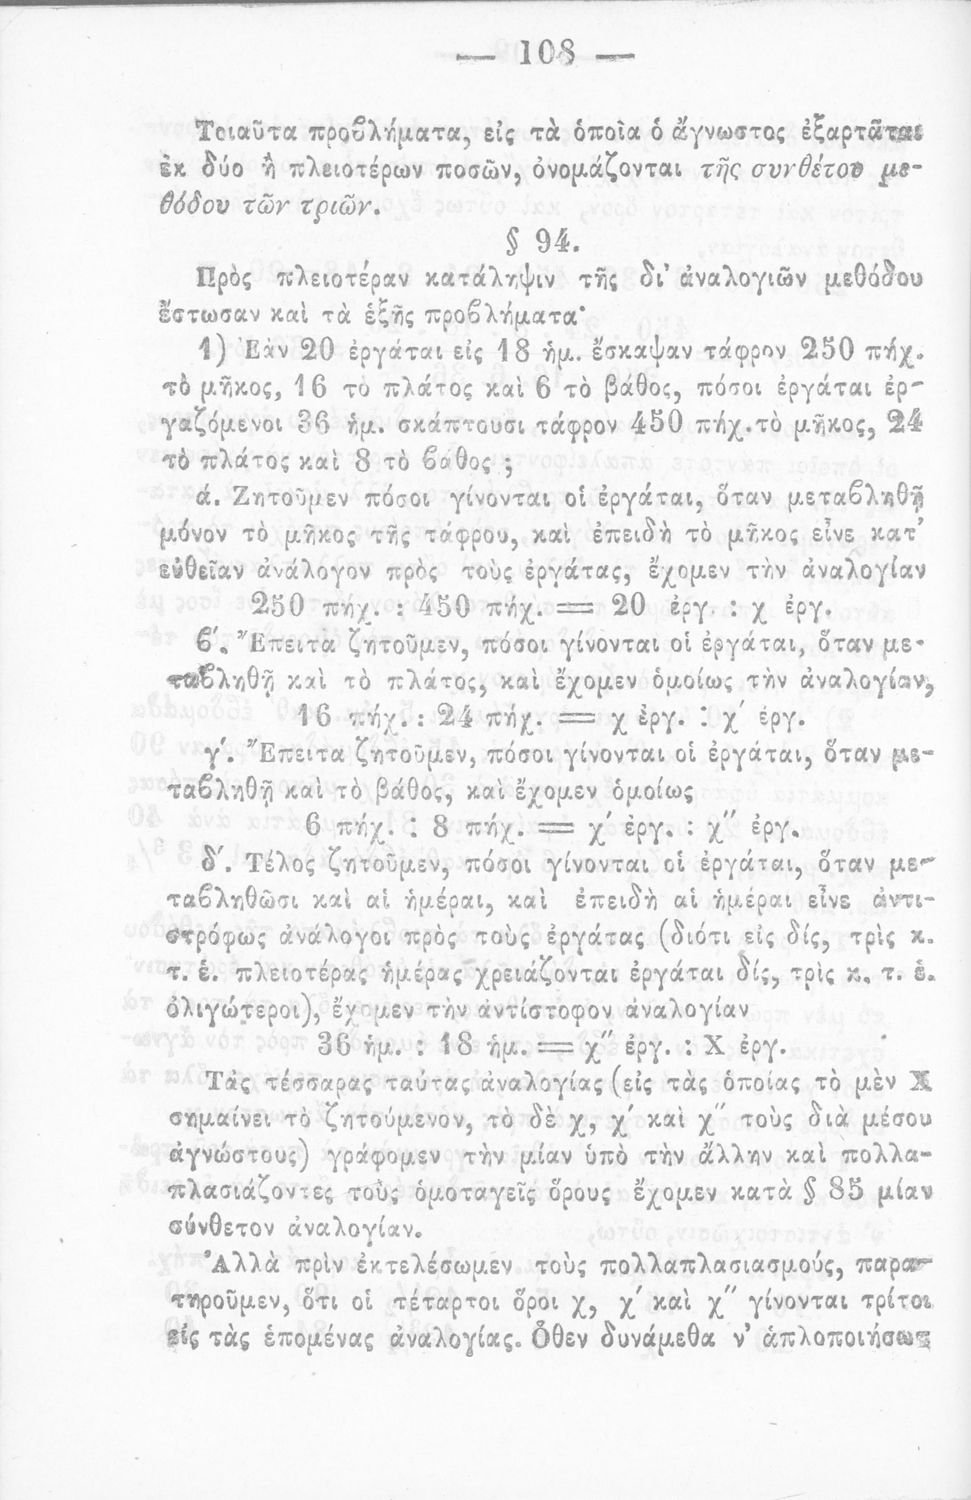 — 108 —
Τοιαῦτα προβλήματα, εἰς τὰ ὁποῖα ὁ ἄγνωστος ἐξαρτᾶται
ἐκ δύο ἢ πλειοτέρων ποσῶν, ὀνομάζονται τῆς συνθέτου με-
θόδου τῶν τριῶν.
§ 94.
Πρὸς πλειοτέραν κατάληψιν τῆς δι' ἀναλογιῶν μεθόδου
ἔστωσαν καὶ τὰ ἑξῆς προβλήματα·
1) Ἐὰν 20 ἐργάται εἰς 18 ἡμ. ἔσκαψαν τάφρον 250 πήχ.
τὸ μῆκος, 16 τὸ πλάτος καὶ 6 τὸ βάθος, πόσοι ἐργάται ἐρ-
γαζόμενοι 36 ἡμ. σκάπτουσι τάφρον 450 πήχ. τὸ μῆκος, 24
τὸ πλάτος καὶ 8 τὸ βάθος ;
ά. Ζητοῦμεν πόσοι γίνονται οἱ ἐργάται, ὅταν μεταβληθῇ
μόνον τὸ μῆκος τῆς τάφρου, καὶ ἐπειδὴ τὸ μῆκος εἶνε κατ'
εὐθεῖαν ἀνάλογον πρὸς τοὺς ἐργάτας, ἔχομεν τὴν ἀναλογίαν
250 πήχ. : 450 πήχ. = 20 ἐργ. : χ ἐργ.
β'. Ἔπειτα ζητοῦμεν, πόσοι γίνονται οἱ ἐργάται, ὅταν με-
ταβληθῇ καὶ τὸ πλάτος, καὶ ἔχομεν ὁμοίως τὴν ἀναλογίαν,
16 πήχ. : 24 πήχ. = χ ἐργ. : χ' ἐργ.
γ'. Ἔπειτα ζητοῦμεν, πόσοι γίνονται οἱ ἐργάται, ὅταν με-
ταβληθῇ καὶ τὸ βάθος, καὶ ἔχομεν ὁμοίως
6 πήχ. : 8 πήχ. = χ' ἐργ. : χ'' ἐργ.
δ'. Τέλος ζητοῦμεν, πόσοι γίνονται οἱ ἐργάται, ὅταν με-
ταβληθῶσι καὶ αἱ ἡμέραι, καὶ ἐπειδὴ αἱ ἡμέραι εἶνε ἀντι-
στρόφως ἀνάλογοι πρὸς τοὺς ἐργάτας (διότι εἰς δίς, τρὶς κ.
τ. ἑ. πλειοτέρας ἡμέρας χρειάζονται ἐργάται δίς, τρὶς κ. τ. ἑ.
ὀλιγώτεροι), ἔχομεν τὴν ἀντίστοφον ἀναλογίαν
36 ἡμ. : 18 ἡμ. = χ'' ἐργ. : Χ ἐργ.
Τὰς τέσσαρας ταύτας ἀναλογίας (εἰς τὰς ὁποίας τὸ μὲν Χ
σημαίνει τὸ ζητούμενον, τὸ δὲ χ, χ' καὶ χ'' τοὺς διὰ μέσου
ἀγνώστους) γράφομεν τὴν μίαν ὑπὸ τὴν ἄλλην καὶ πολλα-
πλασιάζοντες τοὺς ὁμοταγεῖς ὅρους ἔχομεν κατὰ § 85 μίαν
σύνθετον ἀναλογίαν.
Ἀλλὰ πρὶν ἐκτελέσωμεν τοὺς πολλαπλασιασμούς, παρα-
τηροῦμεν, ὅτι οἱ τέταρτοι ὅροι χ, χ' καὶ χ'' γίνονται τρίτοι
εἰς τὰς ἑπομένας ἀναλογίας. Ὅθεν δυνάμεθα ν' ἁπλοποιήσως